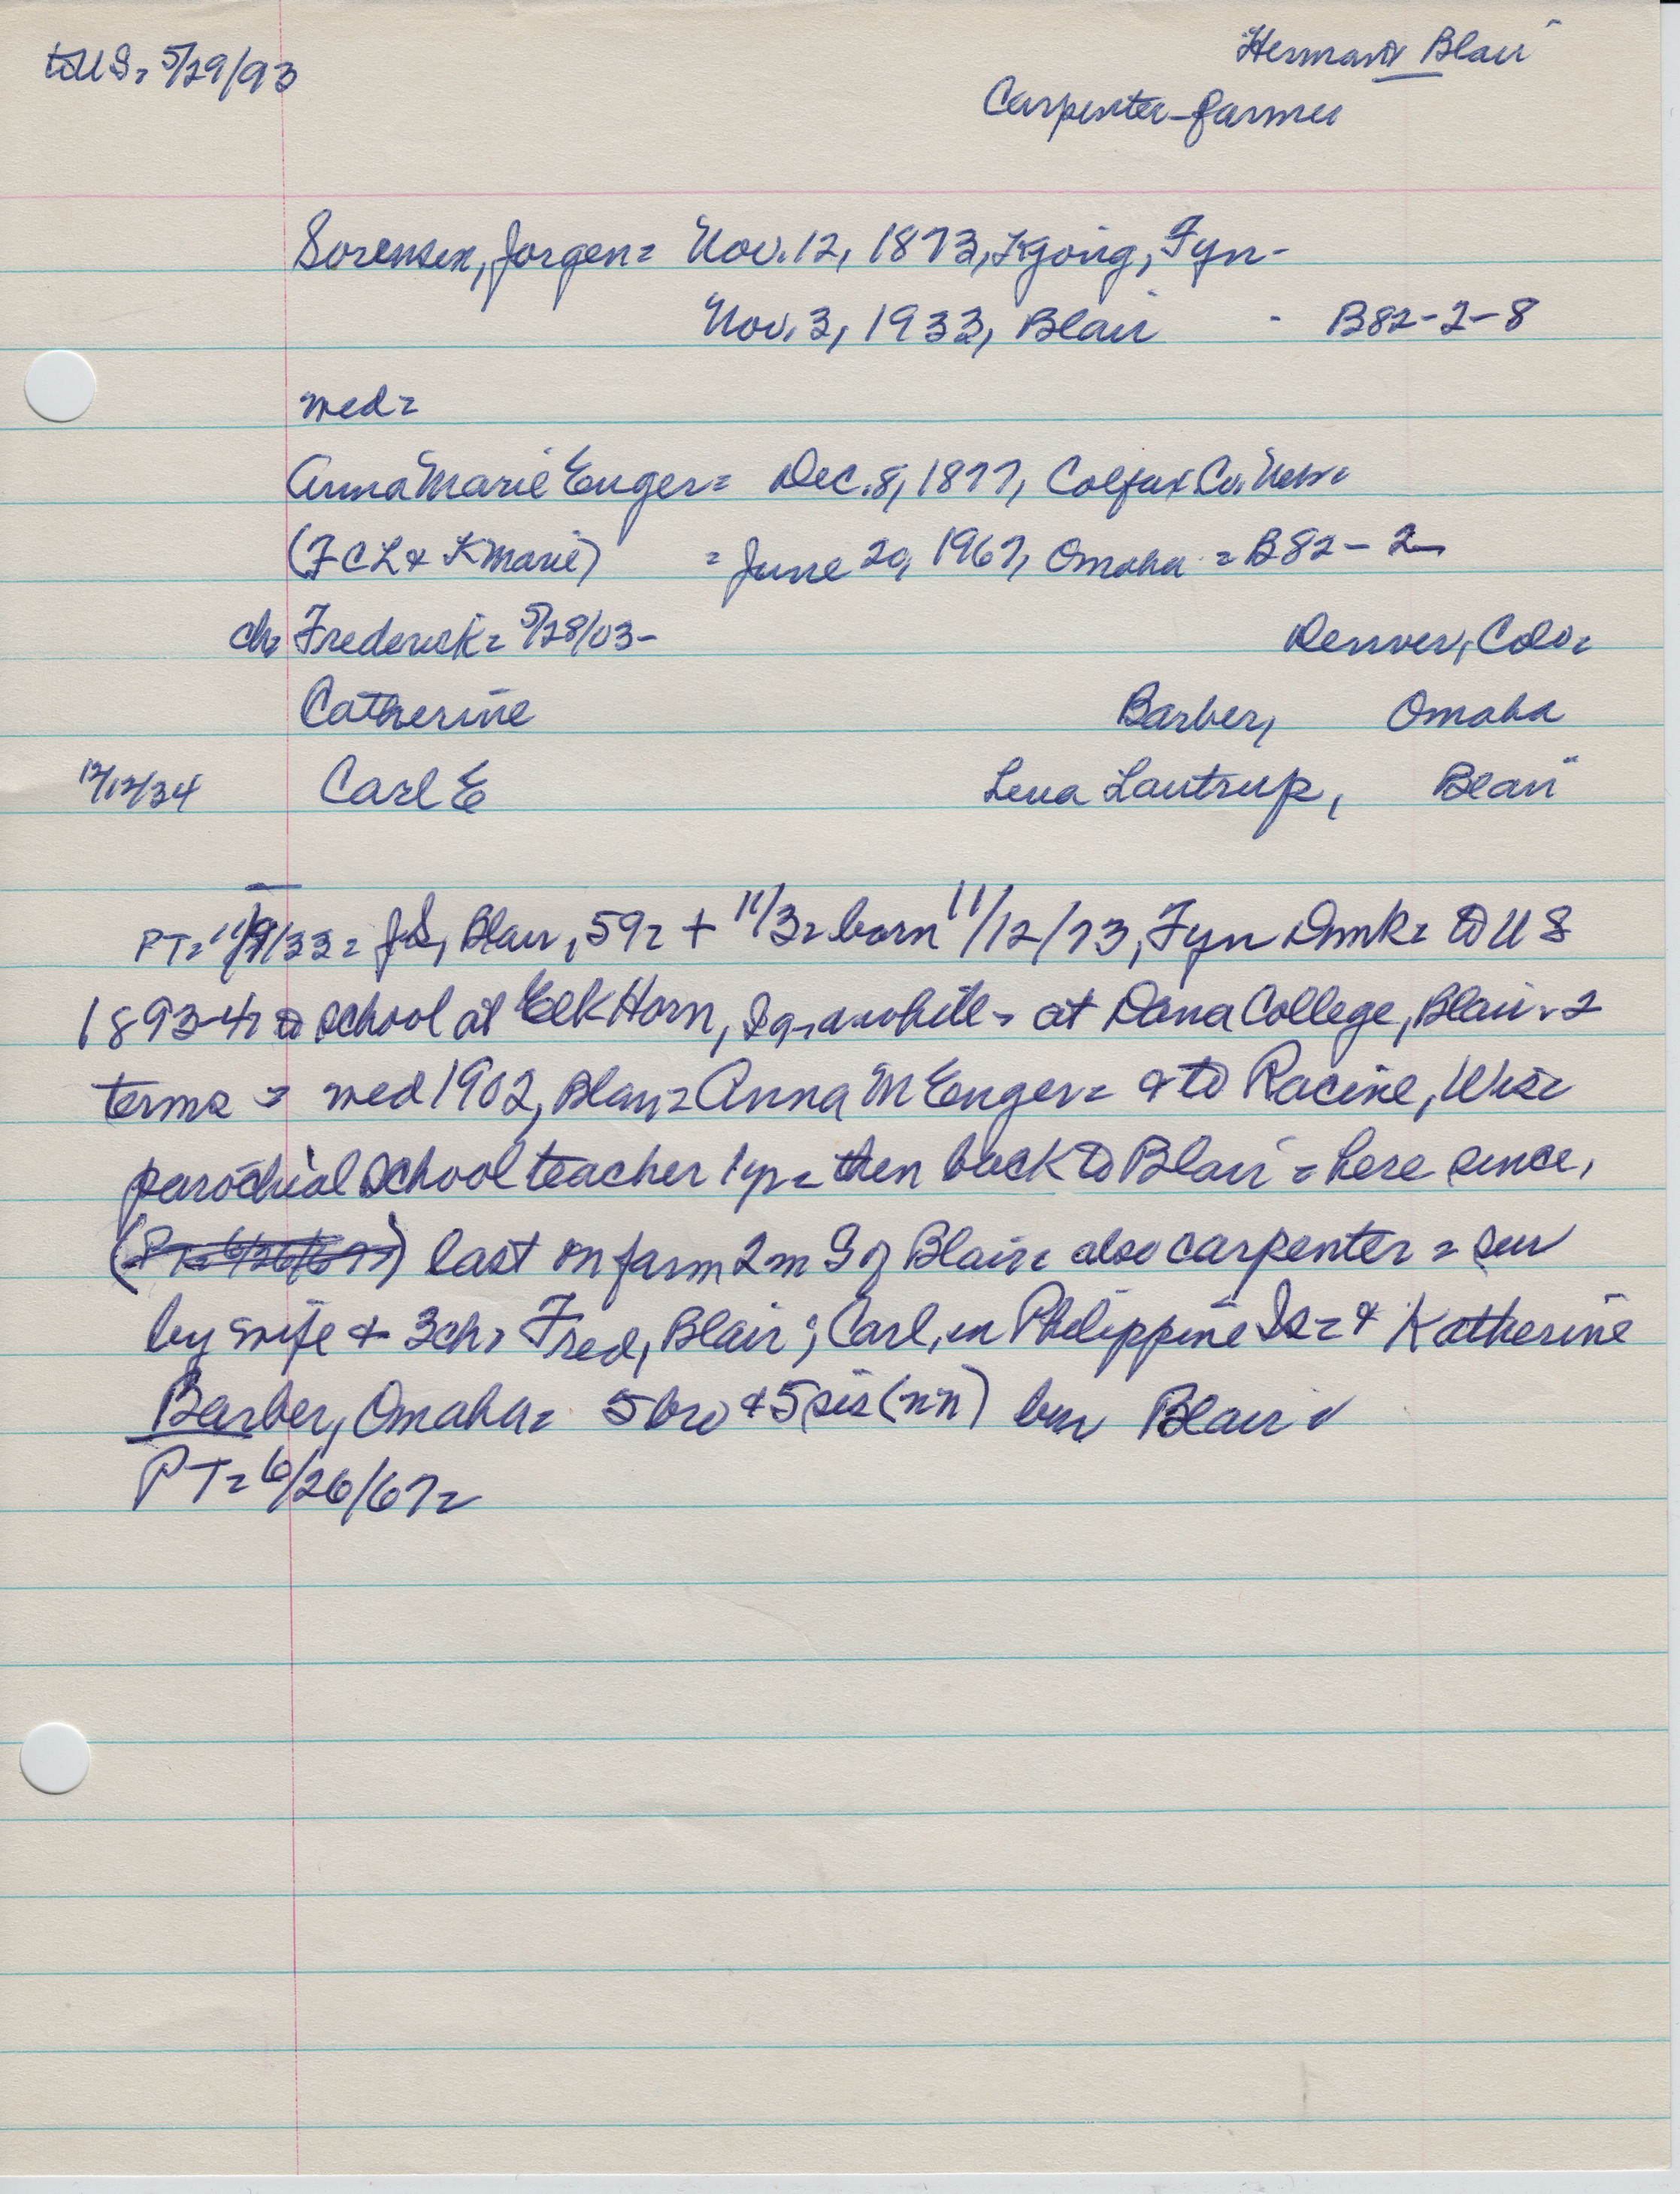 to US= 5/29/93
Herman Blair
Carpenter-farmer
Sorensen, Jorgen= Nov. 12, 1873, Kjong, Fyn-
Nov. 3, 1933, Blair - B82-2-8
wed=
Anna Marie Enger= Dec. 8, 1877, Colfax Co. Neb=
(FCL & K Marie) = June 20, 1967, Omaha = B82-2-
ch= Frederick= 5/28/03- Denver, Colo=
Catherine Barber, Omaha
12/12/34 Carl E Lena Lautrup, Blair
PT= 11/9/33= JS, Blair, 59= + 11/3= born 11/12/73, Fyn Dmk= to US
1893-4= to school at Elk Horn, Ia, awhile= at Dana College, Blair= 2
terms = wed 1902, Blair= Anna M Enger= & to Racine, Wis=
parochial school teacher 1yr= then back to Blair = here since,
(PT= 6/26/67=) last on farm 2m S of Blair= also carpenter = sur
by wife & 3ch= Fred, Blair; Carl, in Philippine Is= & Katherine
Barber, Omaha= 5 bro & 5 sis (nn) bur Blair
PT= 6/26/67=